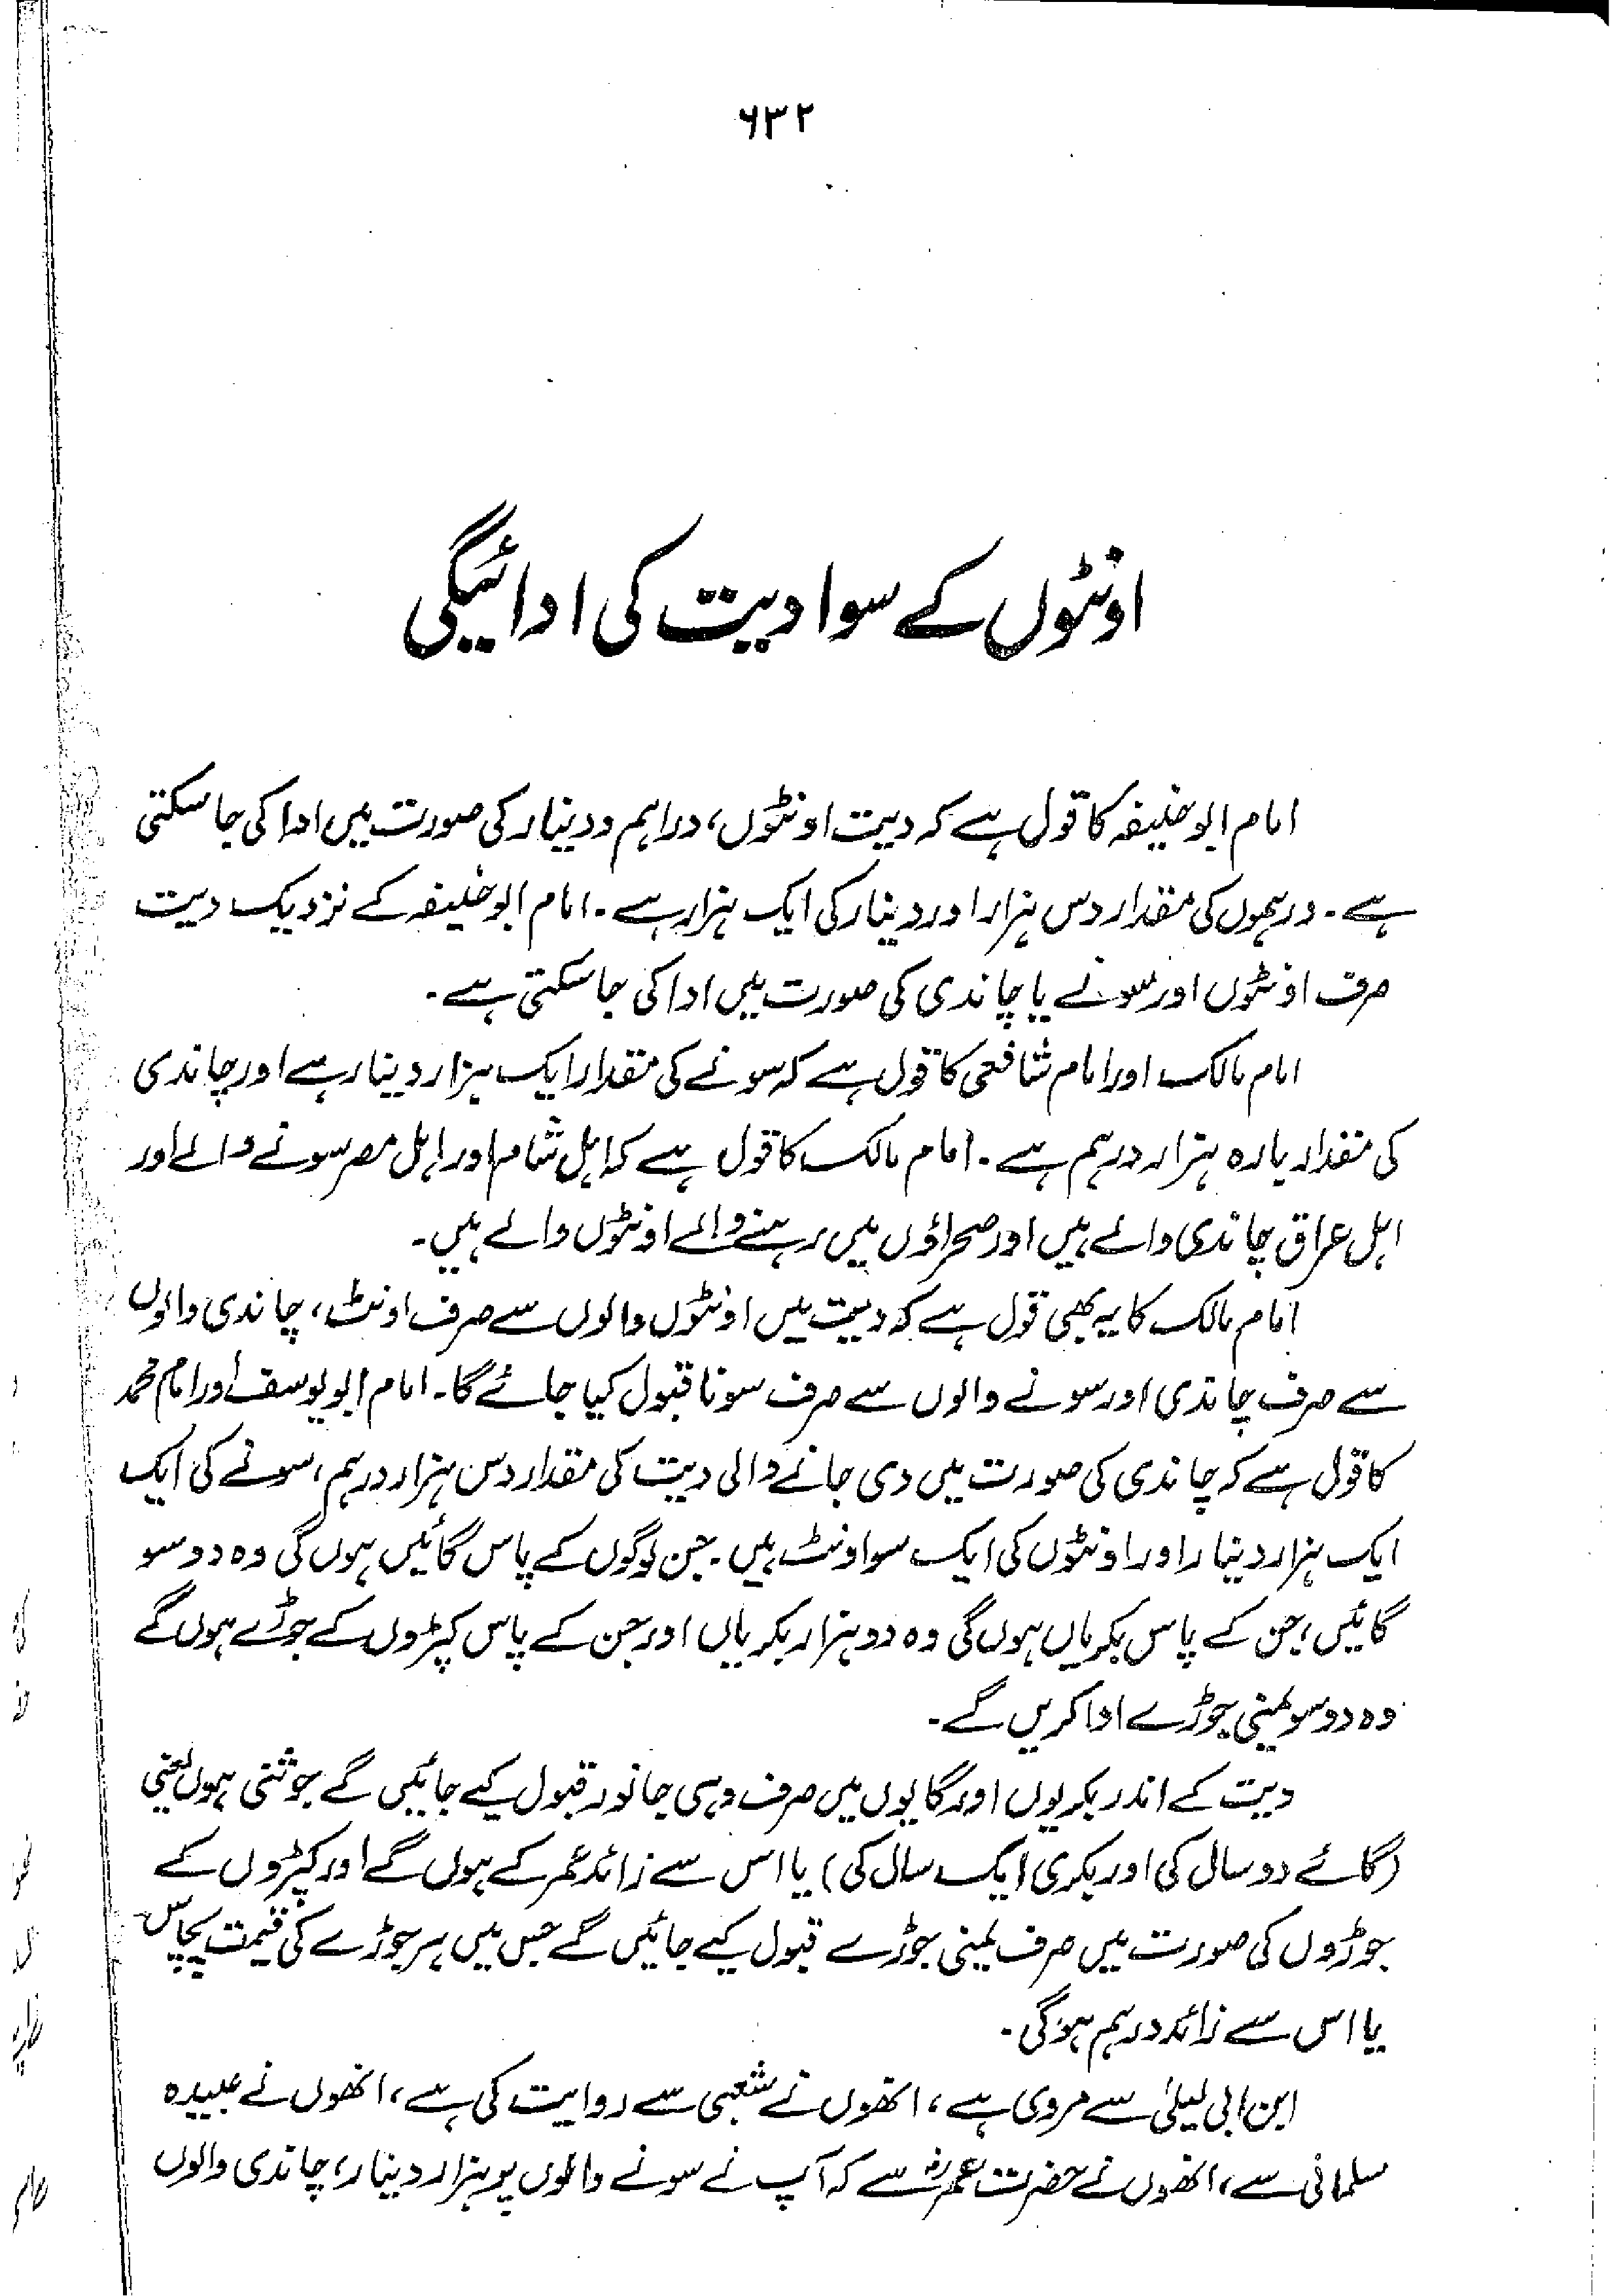 ۶۳۲
اونٹوں کے سوا دیت کی ادائیگی
امام ابو حنیفہ کا قول ہے کہ دیت اونٹوں، دراہم و دینار کی صورت میں ادا کی جا سکتی
ہے۔ درہموں کی مقدار دس ہزار اور دینار کی ایک ہزار ہے۔ امام ابو حنیفہ کے نزدیک دیت
صرف اونٹوں اور سونے یا چاندی کی صورت میں ادا کی جا سکتی ہے۔
امام مالک اور امام شافعی کا قول ہے کہ سونے کی مقدار ایک ہزار دینار ہے اور چاندی
کی مقدار بارہ ہزار درہم ہے۔ امام مالک کا قول ہے کہ اہل شام اور اہل مصر سونے والے اور
اہل عراق چاندی والے ہیں اور صحراؤں میں رہنے والے اونٹوں والے ہیں۔
امام مالک کا یہ بھی قول ہے کہ دیت میں اونٹوں والوں سے صرف اونٹ، چاندی والوں
سے صرف چاندی اور سونے والوں سے صرف سونا قبول کیا جائے گا۔ امام ابو یوسف اور امام محمد
کا قول ہے کہ چاندی کی صورت میں دی جانے والی دیت کی مقدار دس ہزار درہم، سونے کی ایک
ایک ہزار دینار اور اونٹوں کی ایک سو اونٹ ہیں۔ جن لوگوں کے پاس گائیں ہوں گی وہ دو سو
گائیں، جن کے پاس بکریاں ہوں گی وہ دو ہزار بکریاں اور جن کے پاس کپڑوں کے جوڑے ہوں گے
وہ دو سو یمنی جوڑے ادا کریں گے۔
دیت کے اندر بکریوں اور گایوں میں صرف وہی جانور قبول کیے جائیں گے جو ثنی ہوں یعنی
(گائے دو سال کی اور بکری ایک سال کی) یا اس سے زائد عمر کے ہوں گے اور کپڑوں کے
جوڑوں کی صورت میں صرف یمنی جوڑے قبول کیے جائیں گے جس میں ہر جوڑے کی قیمت پچاس
یا اس سے زائد درہم ہوگی۔
ابن ابی لیلیٰ سے مروی ہے، انھوں نے شعبی سے روایت کی ہے، انھوں نے عبیدہ
سلمانی سے، انھوں نے حضرت عمرؓ سے کہ آپ نے سونے والوں پر ہزار دینار، چاندی والوں